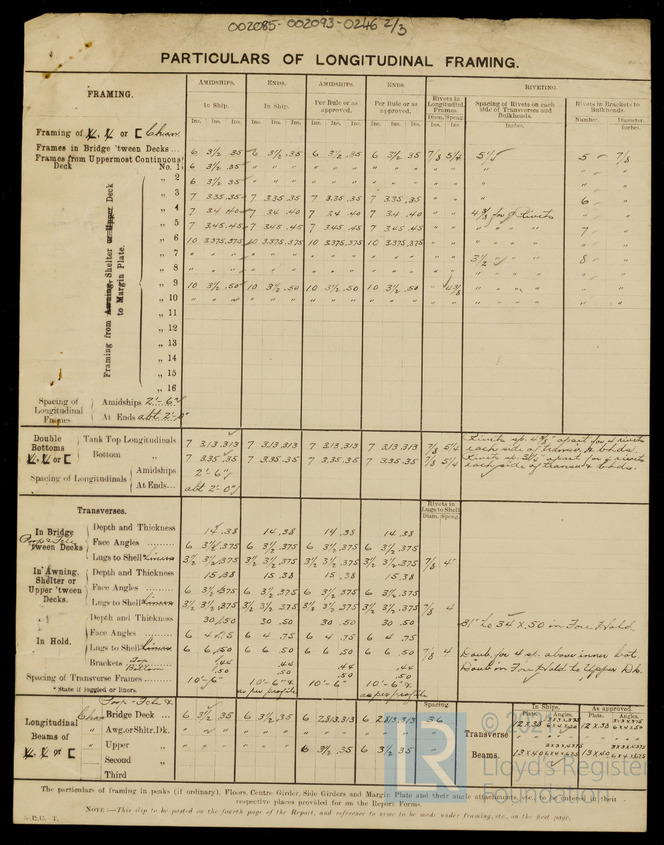 002085-002093-0246 2/3
PARTICULARS OF LONGITUDINAL FRAMING.
FRAMING.
AMIDSHIPS. ENDS. AMIDSHIPS. ENDS. RIVETING.
In Ship. In Ship. Per Rule or as approved. Per Rule or as approved. Rivets in Longitudinal Frames. Spacing of Rivets on each side of Transverses and Bulkheads. Rivets in Brackets to Bulkheads.
Ins. Ins. Ins. Ins. Ins. Ins. Ins. Ins. Ins. Ins. Ins. Ins. Diam. Spcng. Ins. Ins. Inches. Number. Diameter. Inches.
Framing of L, L or [ Chan
Frames in Bridge 'tween Decks ... 6 3½ .35 6 3½ .35 6 3½ .35 6 3½ .35 7/8 5¼ 5 7/8
Frames from Uppermost Continuous
Deck No. 1 6 3½ .35 " " " " " " " " "
Framing from Awning, Shelter or Upper Deck to Margin Plate.
" 2 6 3½ .35 " " " " " " " " "
" 3 7 3.35 .35 7 3.35 .35 7 3.35 .35 7 3.35 .35 " " " 6 "
" 4 7 3.4 .40 7 3.4 .40 7 3.4 .40 7 3.4 .40 " " 4⅜ for 9 Rivets " "
" 5 7 3.45 .45 7 3.45 .45 7 3.45 .45 7 3.45 .45 " " " 7 "
" 6 10 3.375 .375 10 3.375 .375 10 3.375 .375 10 3.375 .375 " " " " "
" 7 " " " " " " " " " " " " 3½ " 8 "
" 8 " " " " " " " " " " " "
" 9 10 3½ .50 10 3½ .50 10 3½ .50 10 3½ .50 " 4⅜ " " "
" 10 " " " " " " " " " " " "
" 11
" 12
" 13
" 14
" 15
" 16
Spacing of Longitudinal Frames
Amidships 2'-6"
At Ends abt 2'-0"
Double Bottoms L, L or [
Tank Top Longitudinals 7 3.13 .313 7 3.13 .313 7 3.13 .313 7 3.13 .313 7/8 5¼ Rivets sp. 4⅜" apart for 4 rivets each side of transv. & bhds.
Bottom " 7 3.35 .35 7 3.35 .35 7 3.35 .35 7 3.35 .35 7/8 5¼ each side of transv. & bhds.
Spacing of Longitudinals
Amidships 2'-6"
At Ends... abt 2'-0"
Transverses.
Rivets in Lugs to Shell
Diam. Spcng.
In Bridge 'tween Decks
Depth and Thickness 14 .38 14 .38 14 .38 14 .38
Face Angles ........ 6 3½ .375 6 3½ .375 6 3½ .375 6 3½ .375
Lugs to Shell* Liners 3½ 3½ .375 3½ 3½ .375 3½ 3½ .375 3½ 3½ .375 7/8 4"
In Awning, Shelter or Upper 'tween Decks.
Depth and Thickness 15 .38 15 .38 15 .38 15 .38
Face Angles ...... 6 3½ .375 6 3½ .375 6 3½ .375 6 3½ .375
Lugs to Shell* Liners 3½ 3½ .375 3½ 3½ .375 3½ 3½ .375 3½ 3½ .375 7/8 4
In Hold.
Depth and Thickness 30 .50 30 .50 30 .50 30 .50 31" to 34 x .50 in Fore Hold
Face Angles ...... 6 4 .75 6 4 .75 6 4 .75 6 4 .75
Lugs to Shell* Liners 6 6 .50 6 6 .50 6 6 .50 6 6 .50 7/8 4 Doub. for 4 sp. above inner bot.
Brackets Top .44 .44 .44 .44 Doub in Fore Hold to Upper Dk.
Bottom .50 .50 .50 .50
Spacing of Transverse Frames ...... 10'-6" 10'-6" & as per profile 10'-6" 10'-6" & as per profile
* State if joggled or liners.
Longitudinal Beams of L, L or [ Chan
Bridge Deck ... 6 3½ .35 6 3½ .35 6 2.813 .313 6 2.813 .313 Spacing. 36
Awg. or Shltr. Dk.
Upper " " " " 6 3½ .35 6 3½ .35
Second "
Third
Transverse Beams.
In Ships. As approved.
Plate. Angles. Plate. Angles.
12 x 35 12 x 35
13 x 40 13 x 40
The particulars of framing in peaks (if ordinary), Floors, Centre Girder, Side Girders and Margin Plate and their angle attachments, etc., to be entered in their
respective places provided for on the Report Forms.
NOTE.—This slip to be pasted on the fourth page of the Report, and reference to same to be made under framing, etc., on the first page.
© 2021
LR
Lloyd's Register
Foundation